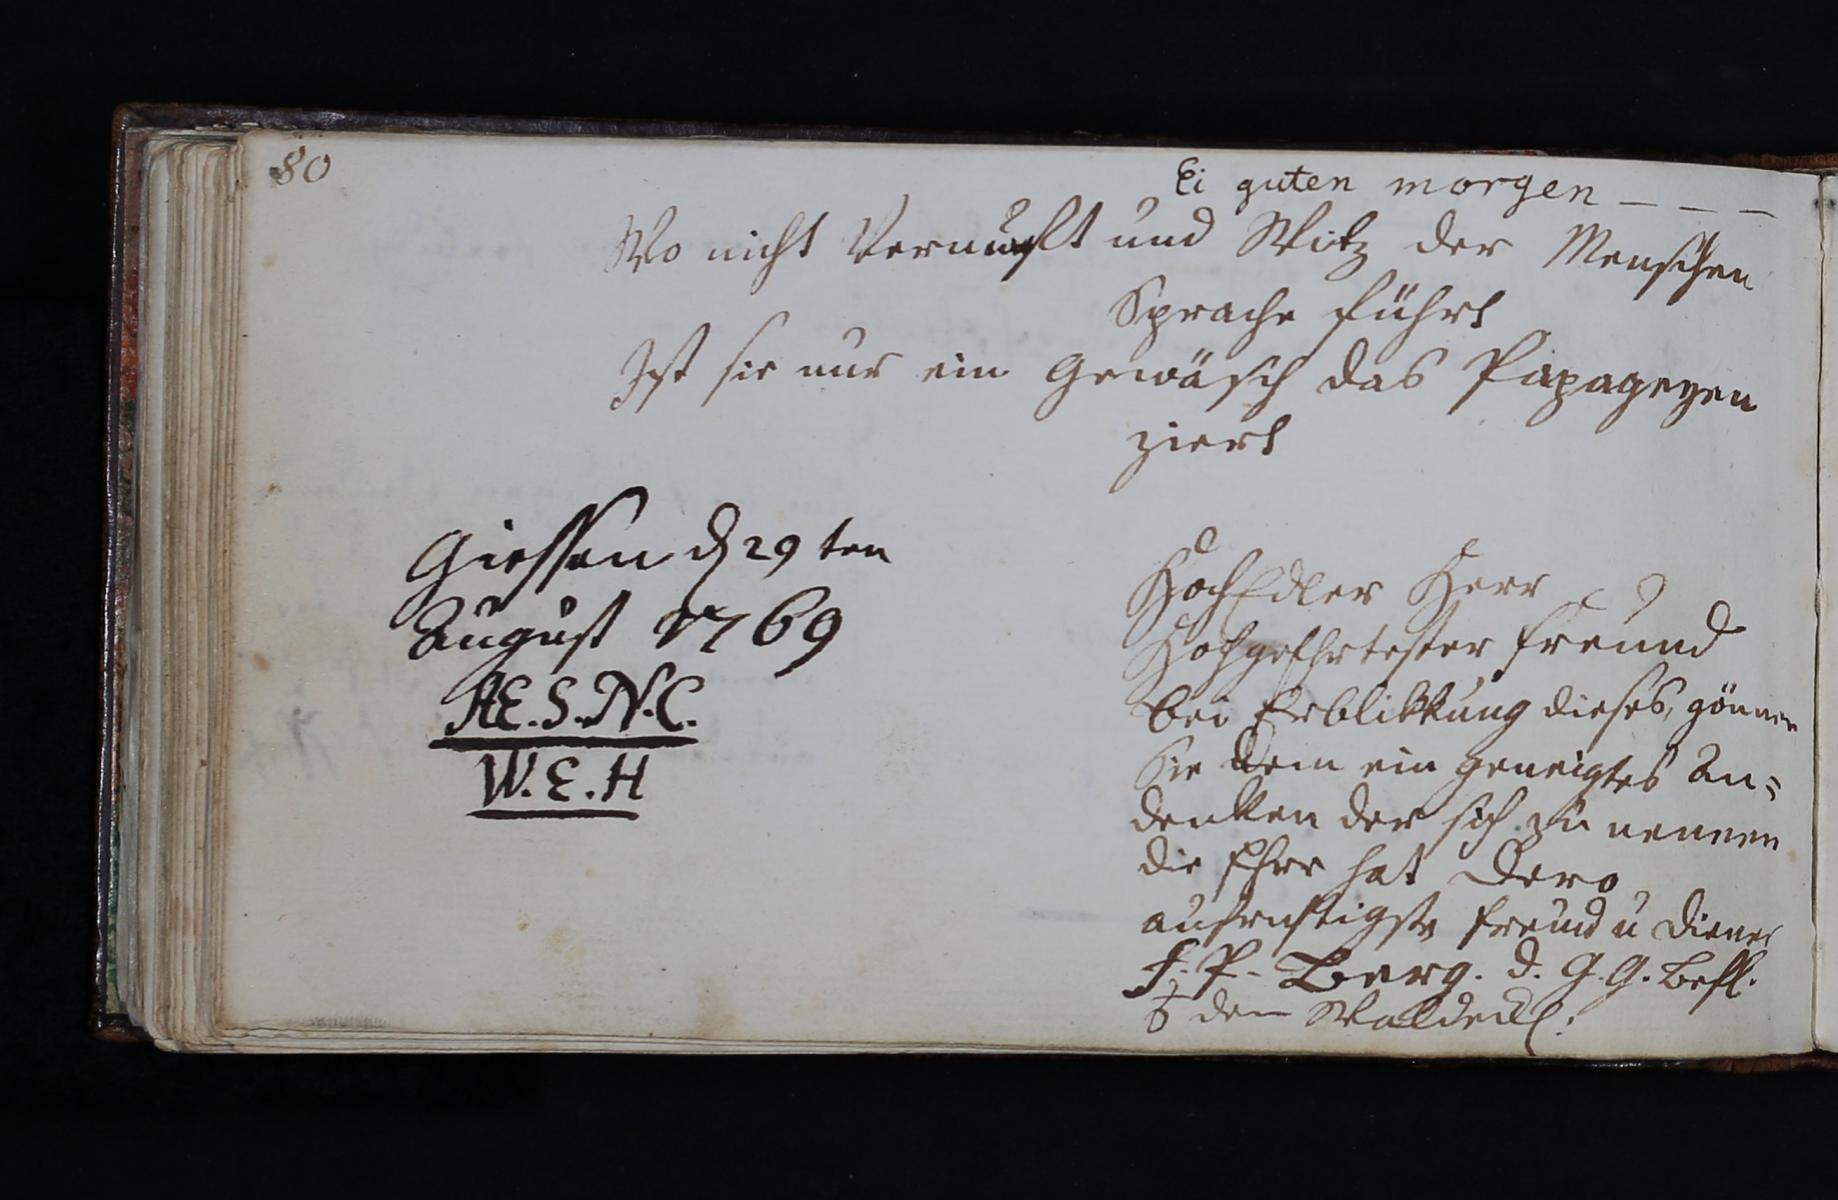 80
Ei guten morgen _ _ _
Wo nicht Vernunft und Witz der Menschen
Sprache führt
Ist sie nur ein Gewäsch das Papageyen
ziert
Giessen d 29 ten
August 1769
AE. S. N. C.
W. E. H
HochEdler Herr
Hochgeehrtester Freund
bei Erblikkung dieses, gönnen
Sie dem ein geneigtes An=
denken der sich zu nennen
die Ehre hat Dero
aufrichtigster Freund u Diener
J. P. Berg. d. G. G. Befl.
dem Waldeck: